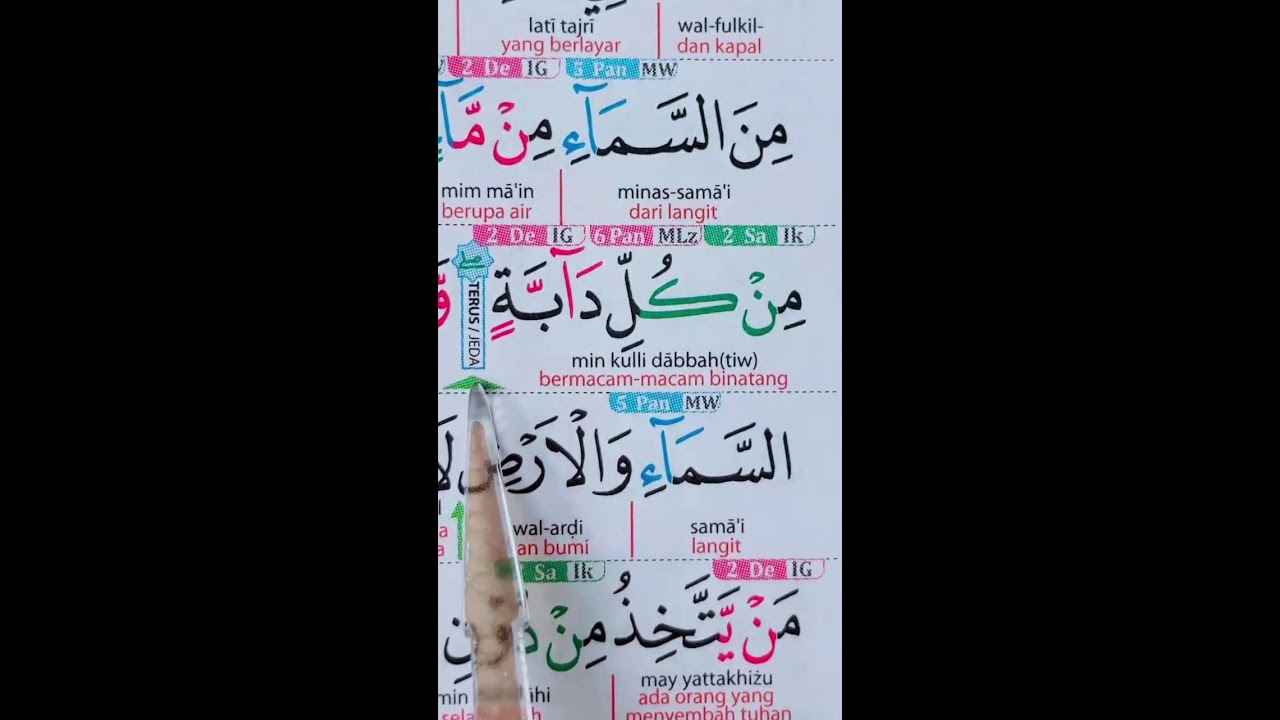 wal-fulkil- latī tajrī
dan kapal yang berlayar
MW 5 Pan IG 2 De
مِنَ السَّمَآءِ مِنْ مَّآءٍ
minas-samā'i mim mā'in
dari langit berupa air
Ik 2 Sa MLz 6 Pan IG 2 De
مِنْ كُلِّ دَآبَّةٍ
TERUS / JEDA
min kulli dābbah(tiw)
bermacam-macam binatang
MW 5 Pan
السَّمَآءِ وَالْاَرْضِ
samā'i wal-arḍi
langit bumi
IG 2 De Ik Sa
مَنْ يَّتَّخِذُ مِنْ
may yattakhiżu min
ada orang yang
menyembah tuhan